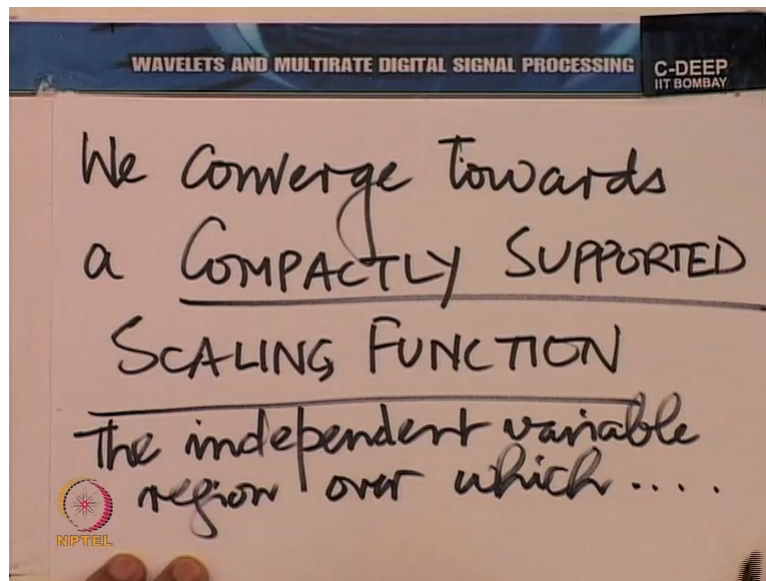 WAVELETS AND MULTIRATE DIGITAL SIGNAL PROCESSING
C-DEEP
IIT BOMBAY
We Converge Towards
a COMPACTLY SUPPORTED
SCALING FUNCTION
The independent variable
region over which ....
NPTEL